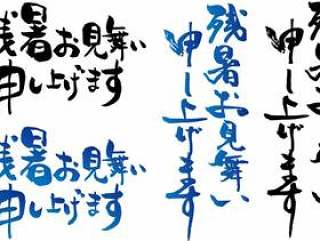 残暑お見舞い
申し上げます
残暑お見舞い
申し上げます
残暑お見舞い
申し上げます
残暑お見舞い
申し上げます